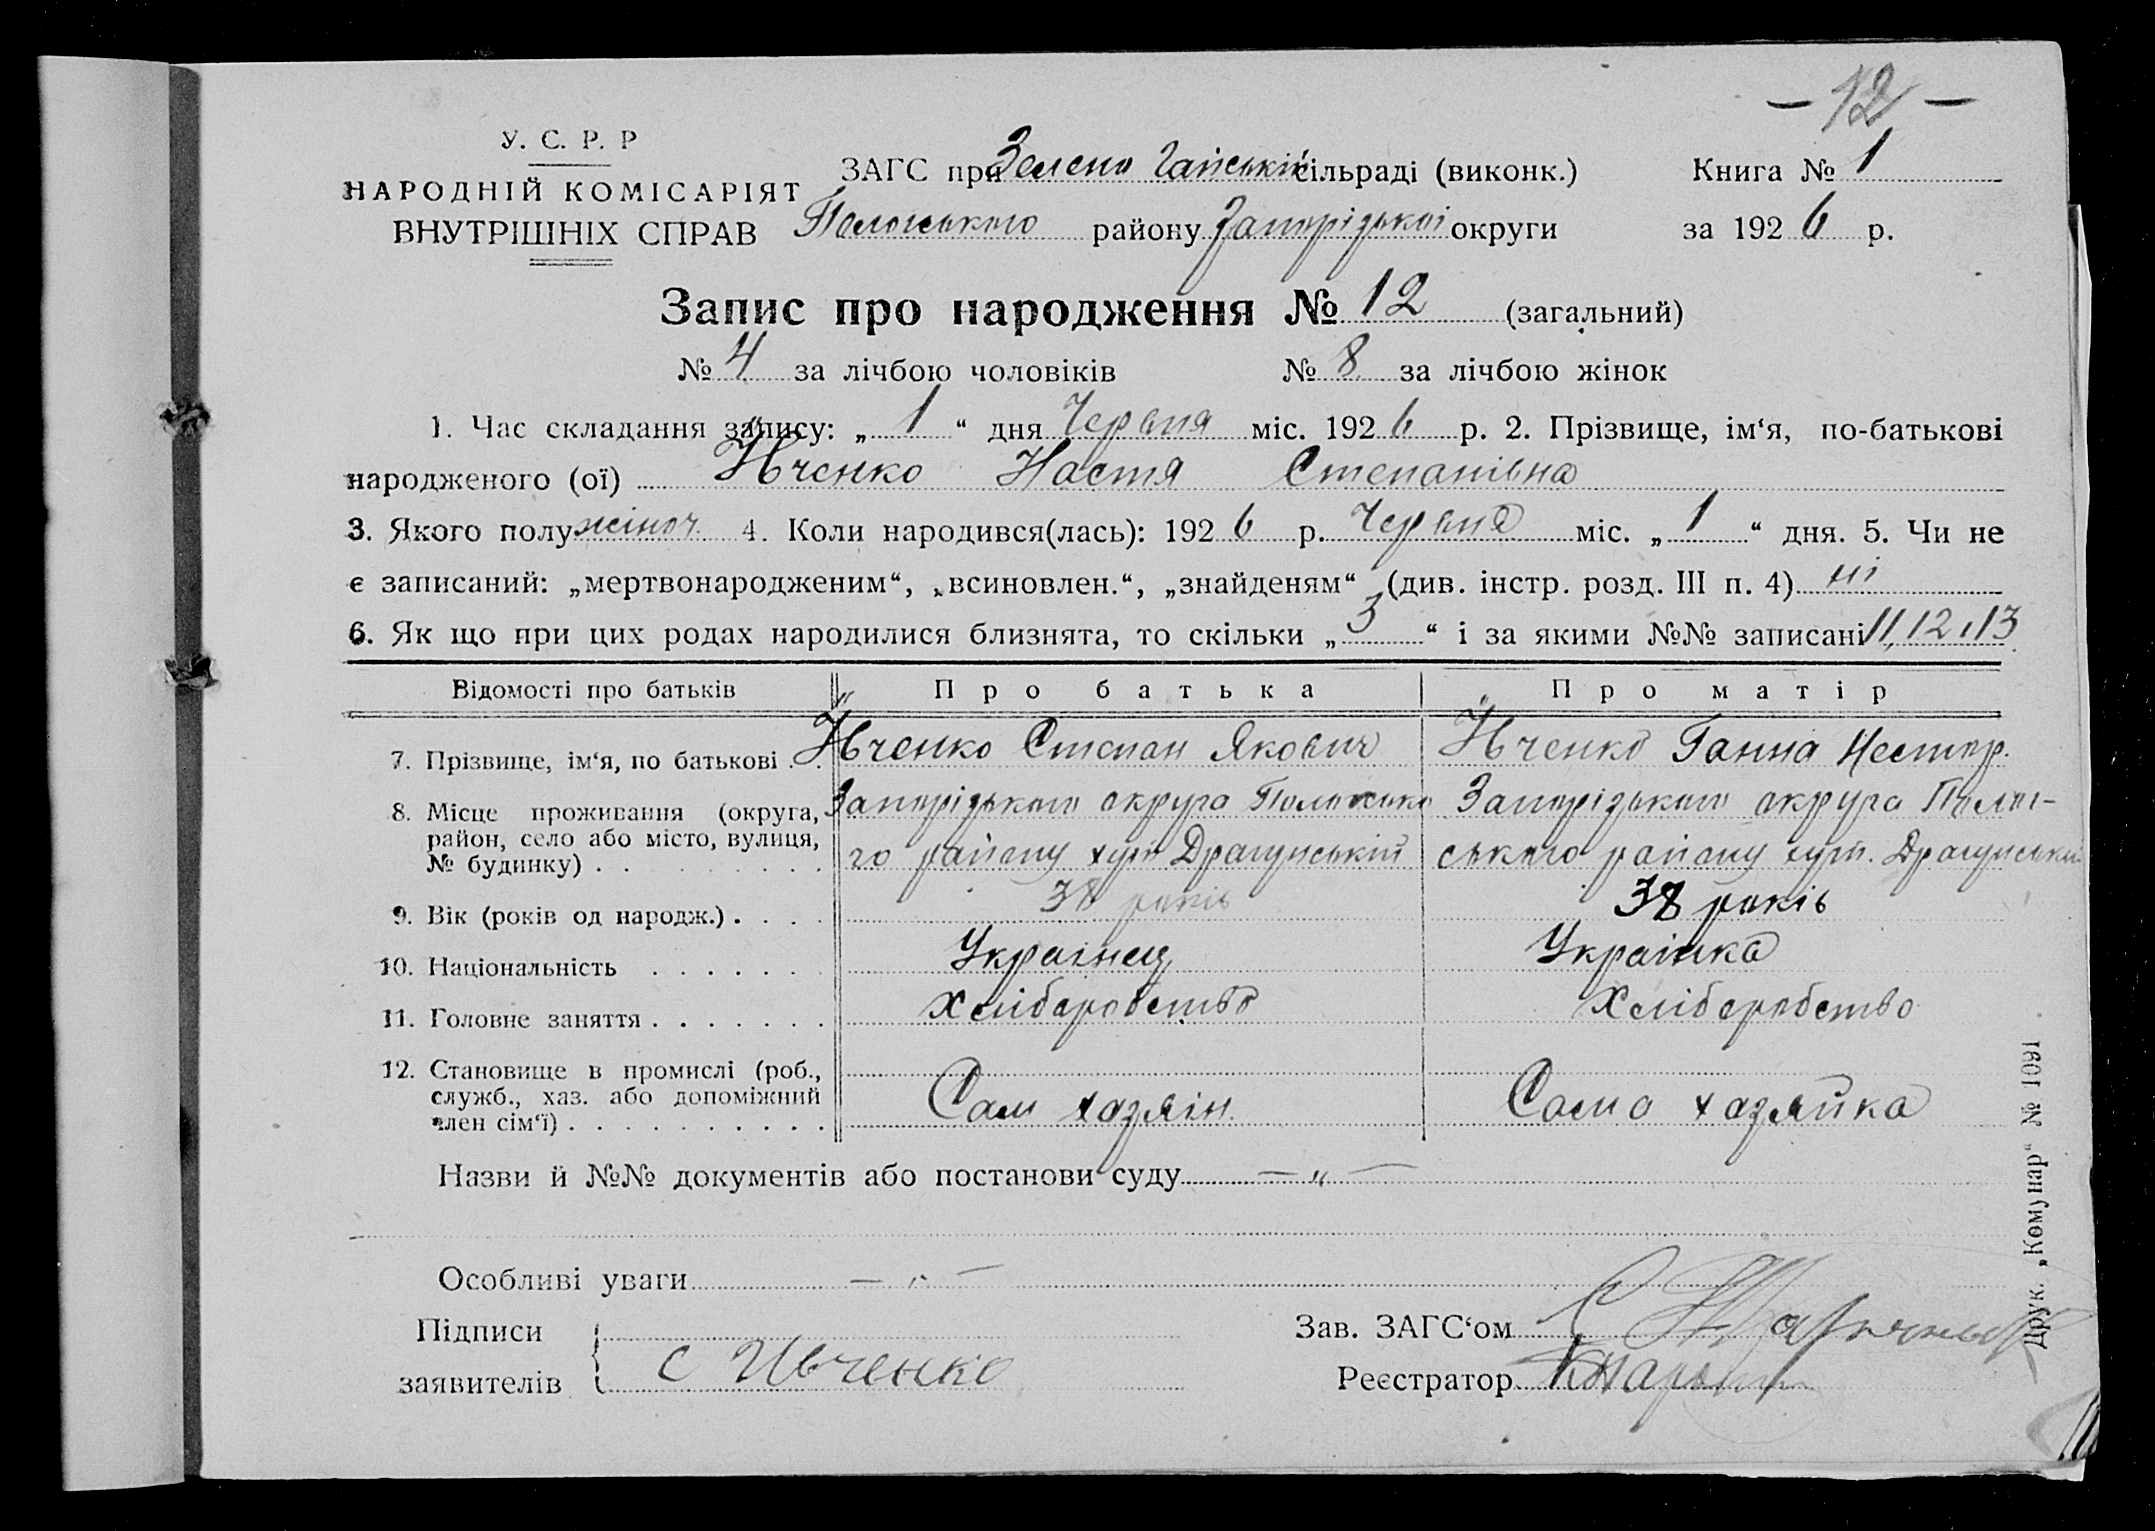 — 12 —
У. С. Р. Р
НАРОДНІЙ КОМІСАРІЯТ
ВНУТРІШНІХ СПРАВ
ЗАГС при Зелено Гайській сільраді (виконк.) Книга № 1
Пологського району Запорізької округи за 1926 р.
Запис про народження № 12 (загальний)
№ 4 за лічбою чоловіків № 8 за лічбою жінок
1. Час складання запису: „ 1 “ дня Червня міс. 1926 р. 2. Прізвище, ім‘я, по-батькові
народженого (ої) Ївченко Настя Степанівна
3. Якого полу жіноч. 4. Коли народився(лась): 1926 р. Червня міс. „ 1 “ дня. 5. Чи не
є записаний: „мертвонародженим“, „всиновлен.“, „знайденям“ (див. інстр. розд. III п. 4) ні
6. Як що при цих родах народилися близнята, то скільки „ 3 “ і за якими №№ записані 11, 12 і 13
Відомості про батьків Про батька Про матір
7. Прізвище, ім‘я, по батькові . . Ївченко Степан Якович Ївченко Ганна Нестор.
8. Місце проживання (округа, Запорізького округа Пологсько Запорізького округа Полог-
район, село або місто, вулиця,
№ будинку) . . го району хут Драгунський ського району хут. Драгунський
9. Вік (років од народж.) . . . . 38 років 38 років
10. Національність . . . . . . . Українец Українка
11. Головне заняття . . . . . . . Хліборобство Хліборобство
12. Становище в промислі (роб.,
служб., хаз. або допоміжний Сам хазяін. Сама хазяйка
член сім‘ї) . . . . . . . . . .
Назви й №№ документів або постанови суду — „ —
Особливі уваги — „ —
Підписи Зав. ЗАГС‘ом
заявителів С Ивченко Реєстратор
Друк. „Комунар“ № 1091